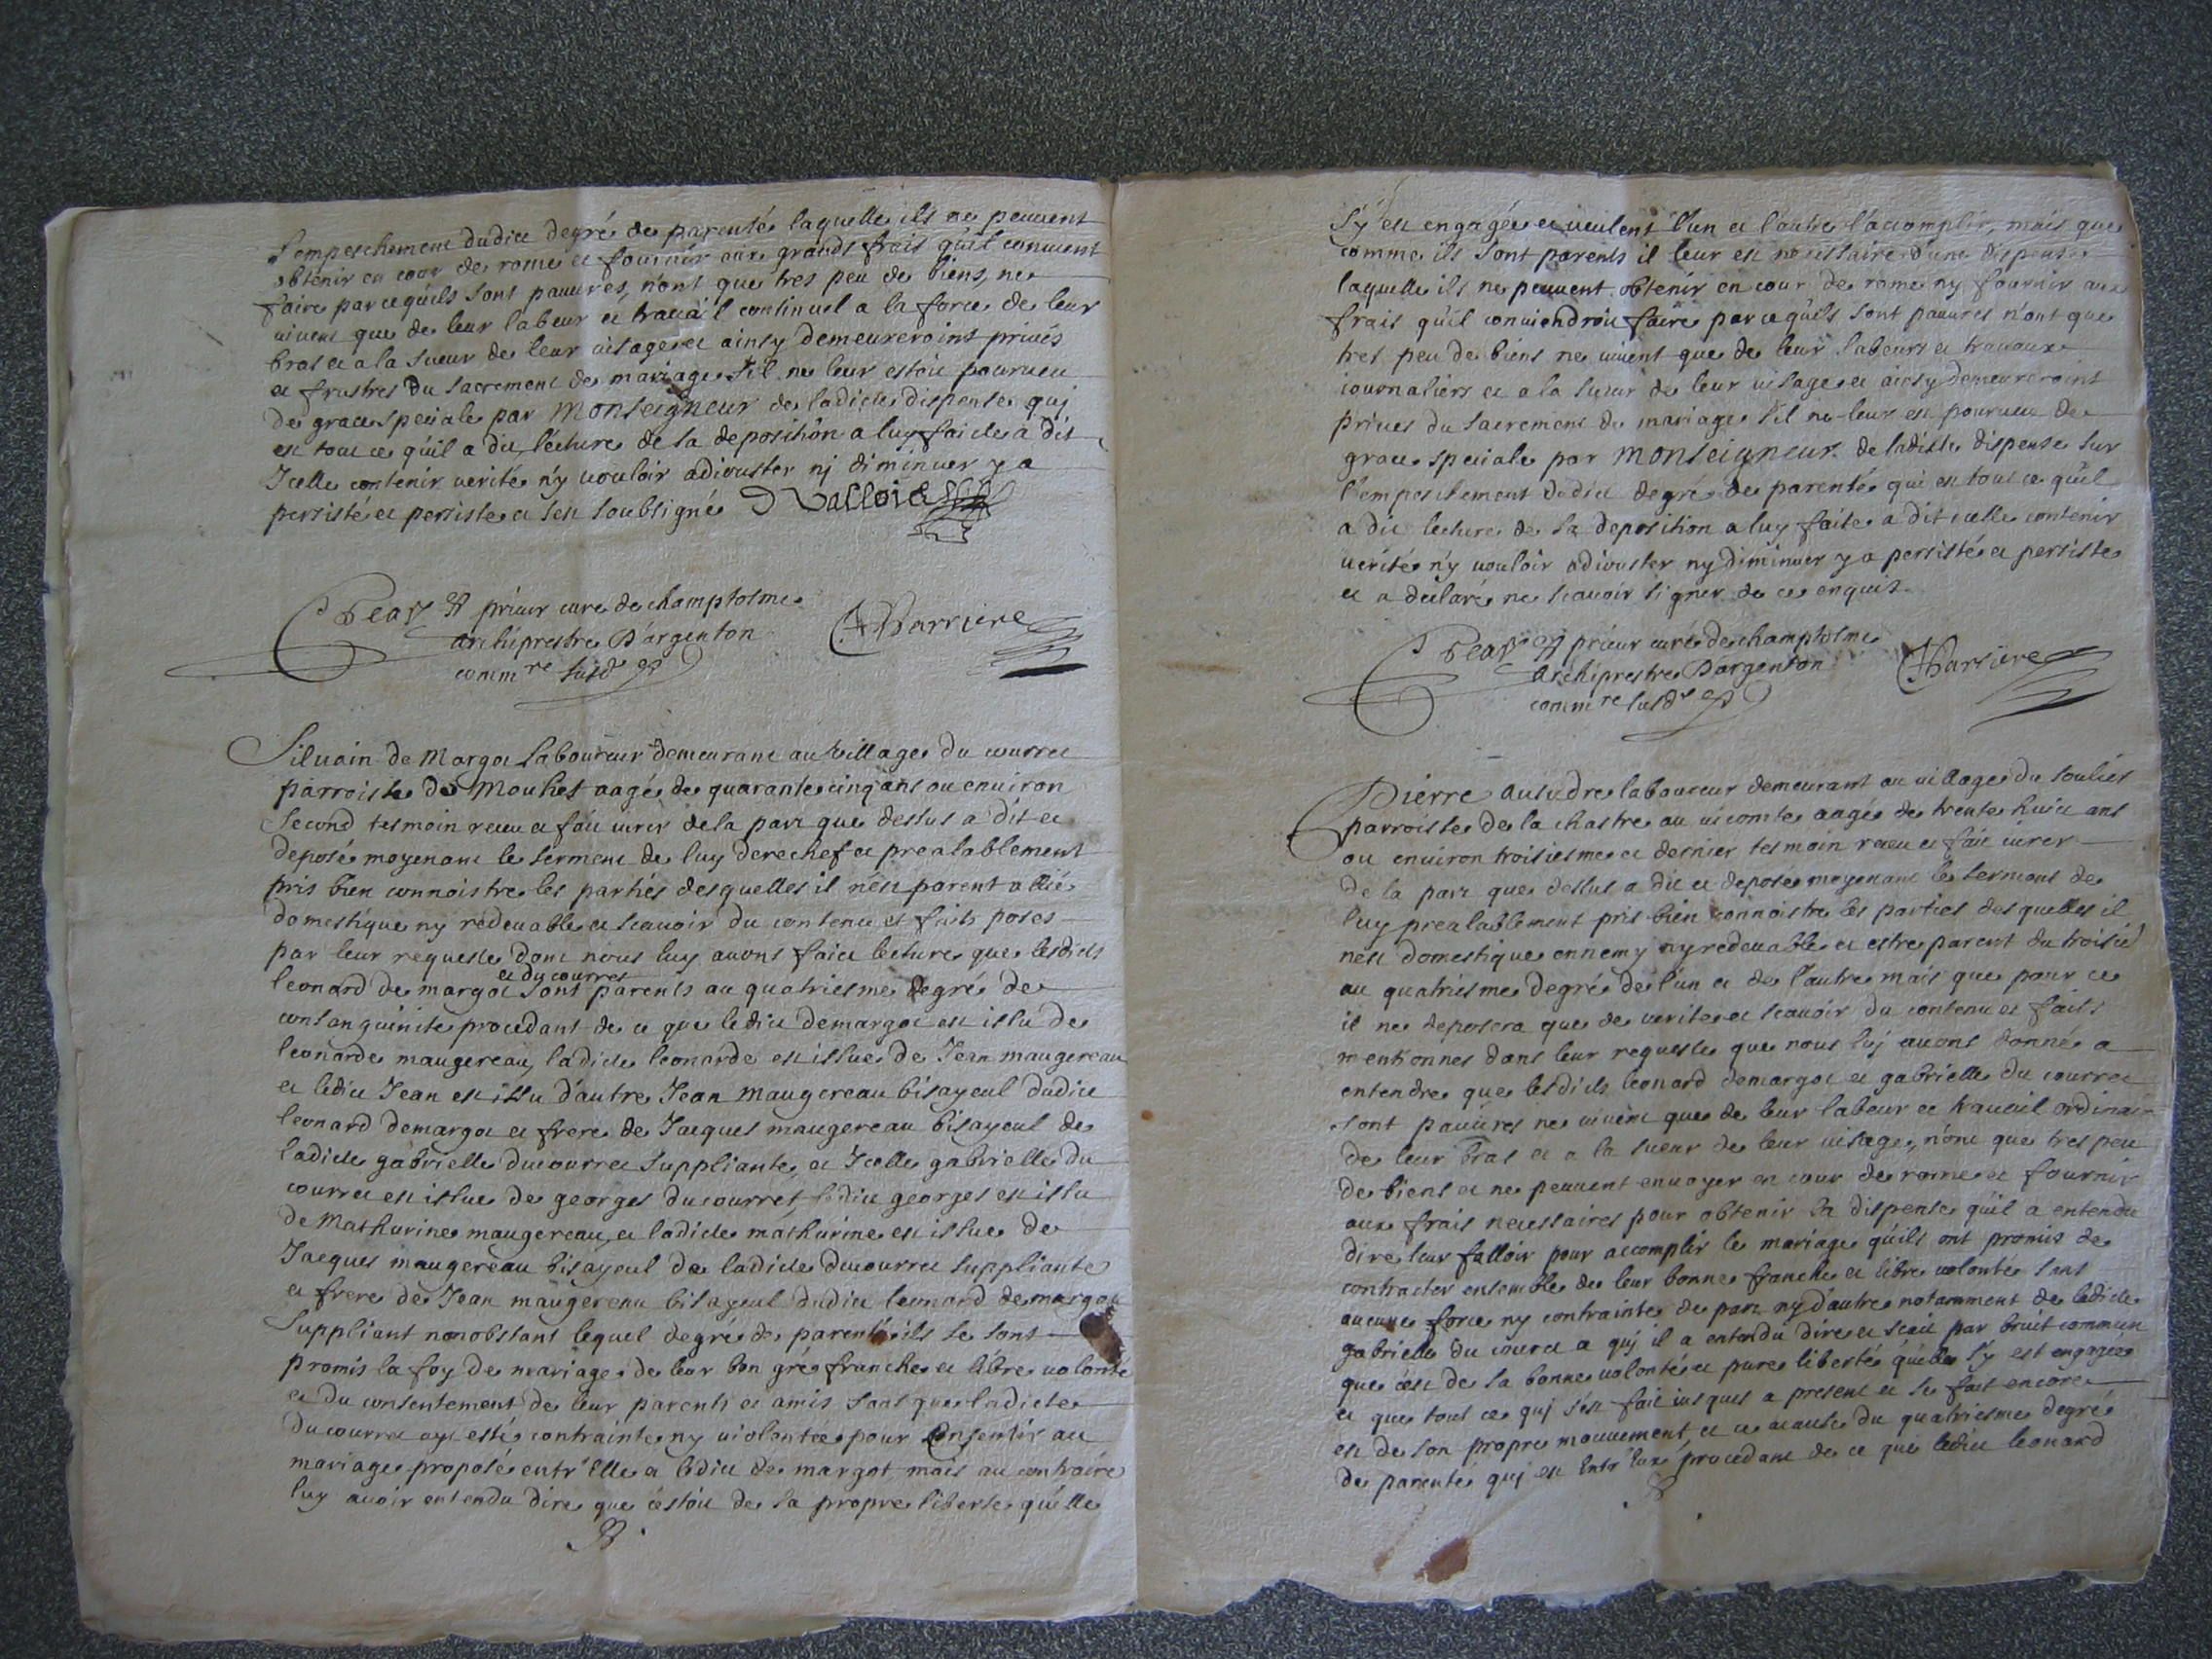 l'empeschement dudict degré de parenté laquelle ils ne peuuent
obtenir en cour de rome et fournir aux grands frais qu'il conuient
faire parcequ'ils sont pauures, n'ont que tres peu de biens, ne
uiuent que de leur labeur et trauail continuel a la force de leur
bras et a la sueur de leur uisage et ainsy demeureroint priués
et frustres du sacrement de mariage s'il ne leur estoit pourueu
de grace speciale par Monseigneur de ladicte dispense qui
est tout ce qu'il a dit, lecture de sa deposition a luy faicte a dit
Icelle contenir uerité n'y uouloir adiouster nj diminuer y a
persisté et persiste et s'est soubsigné D Vallois
prieur curé de champtosme
archiprestre D'argenton
comm.re susd.
Barriere
Siluain de Margot laboureur demeurant au village du courret
parroisse de Mouhet aagé de quarante cinq ans ou enuiron
second tesmoin receu et fait iurer de la part que dessus a dit et
deposé moyenant le serment de luy derechef et prealablement
pris bien connoistre les parties desquelles il n'est parent allié
domestique ny redeuable et scauoir du contenu et faits posés
par leur requeste dont nous luy auons faict lecture que lesdicts
et du courret
leonard de margot sont parents au quatriesme degré de
consanguinité procedant de ce que ledict demargot est issu de
leonarde maugereau, ladicte leonarde est issue de Jean maugereau
et ledict Jean est issu d'autre Jean maugereau bisayeul dudict
leonard demargot et frere de Jacques maugereau bisayeul de
ladicte gabrielle ducourret suppliante, et Icelle gabrielle du
courret est issue de georges ducourret, ledict georges est issu
de Mathurine maugereau, et ladicte mathurine est issue de
Jacques maugereau bisayeul de ladicte ducourret suppliante
et frere de Jean maugereau bisayeul dudict leonard demargot
suppliant nonobstant lequel degré de parenté ils se sont
promis la foy de mariage de leur bon gré franche et libre uolonté
et du consentement de leur parents et amis sans que ladicte
ducourret ayt esté contrainte ny uiolentée pour consentir au
mariage proposé entr'Elle et ledict de margot mais au contraire
luy auoir entendu dire que c'estoit de sa propre liberté qu'elle
s'y est engagée et ueulent l'un et l'autre l'accomplir, mais que
comme ils sont parents il leur est necessaire d'une dispense
laquelle ils ne peuuent obtenir en cour de rome ny fournir aux
frais qu'il conuiendroit faire parcequ'ils sont pauures n'ont que
tres peu de biens ne uiuent que de leur labeurs et trauaux
iournaliers et a la sueur de leur uisage et ainsy demeureroint
priues du sacrement de mariage s'il ne leur est pourueu de
grace speciale par monseigneur de ladicte dispense sur
l'empeschement dudict degré de parenté qui est tout ce qu'il
a dit lecture de sa deposition a luy faite a dit icelle contenir
uerité n'y uouloir adiouster ny diminuer y a persisté et persiste
et a declaré ne scauoir signer de ce enquis.
prieur curé de champtosme
Archiprestre D'argenton
comm.re susd.
Barriere
Pierre laboureur demeurant au uillage du soulier
parroisse de la chastre au uicomte aagé de trente huict ans
ou enuiron troisiesme et dernier tesmoin receu et fait iurer
de la part que dessus a dit et deposé moyenant le serment de
luy prealablement pris bien connoistre les parties desquelles il
n'est domestique ennemy ny redeuable et estre parent du troisié
au quatriesme degré de l'un et de l'autre mais que pour ce
il ne deposera que de uerité et scauoir du contenu et faits
mentionnes dans leur requeste que nous luj auons donné a
entendre que lesdicts leonard demargot et gabrielle du courret
sont pauures ne uiuent que de leur labeur et trauail ordinaire
de leur bras et a la sueur de leur uisage, n'ont que tres peu
de biens et ne peuuent enuoyer en cour de rome et fournir
aux frais necessaires pour obtenir la dispense qu'il a entendu
dire leur falloir pour accomplir le mariage qu'ils ont promis de
contracter ensemble de leur bonne franche et libre uolonté sans
aucune force ny contrainte de part ny d'autre notamment de ladicte
gabrielle du courret a quj il a entendu dire et scait par bruit commun
que c'est de sa bonne uolonté et pure liberté qu'elle s'y est engagée
et que tout ce quj s'est fait iusques a present et se fait encore
est de son propre mouuement et ce a cause du quatriesme degré
de parenté quj est entr'eux procedant de ce que ledict leonard